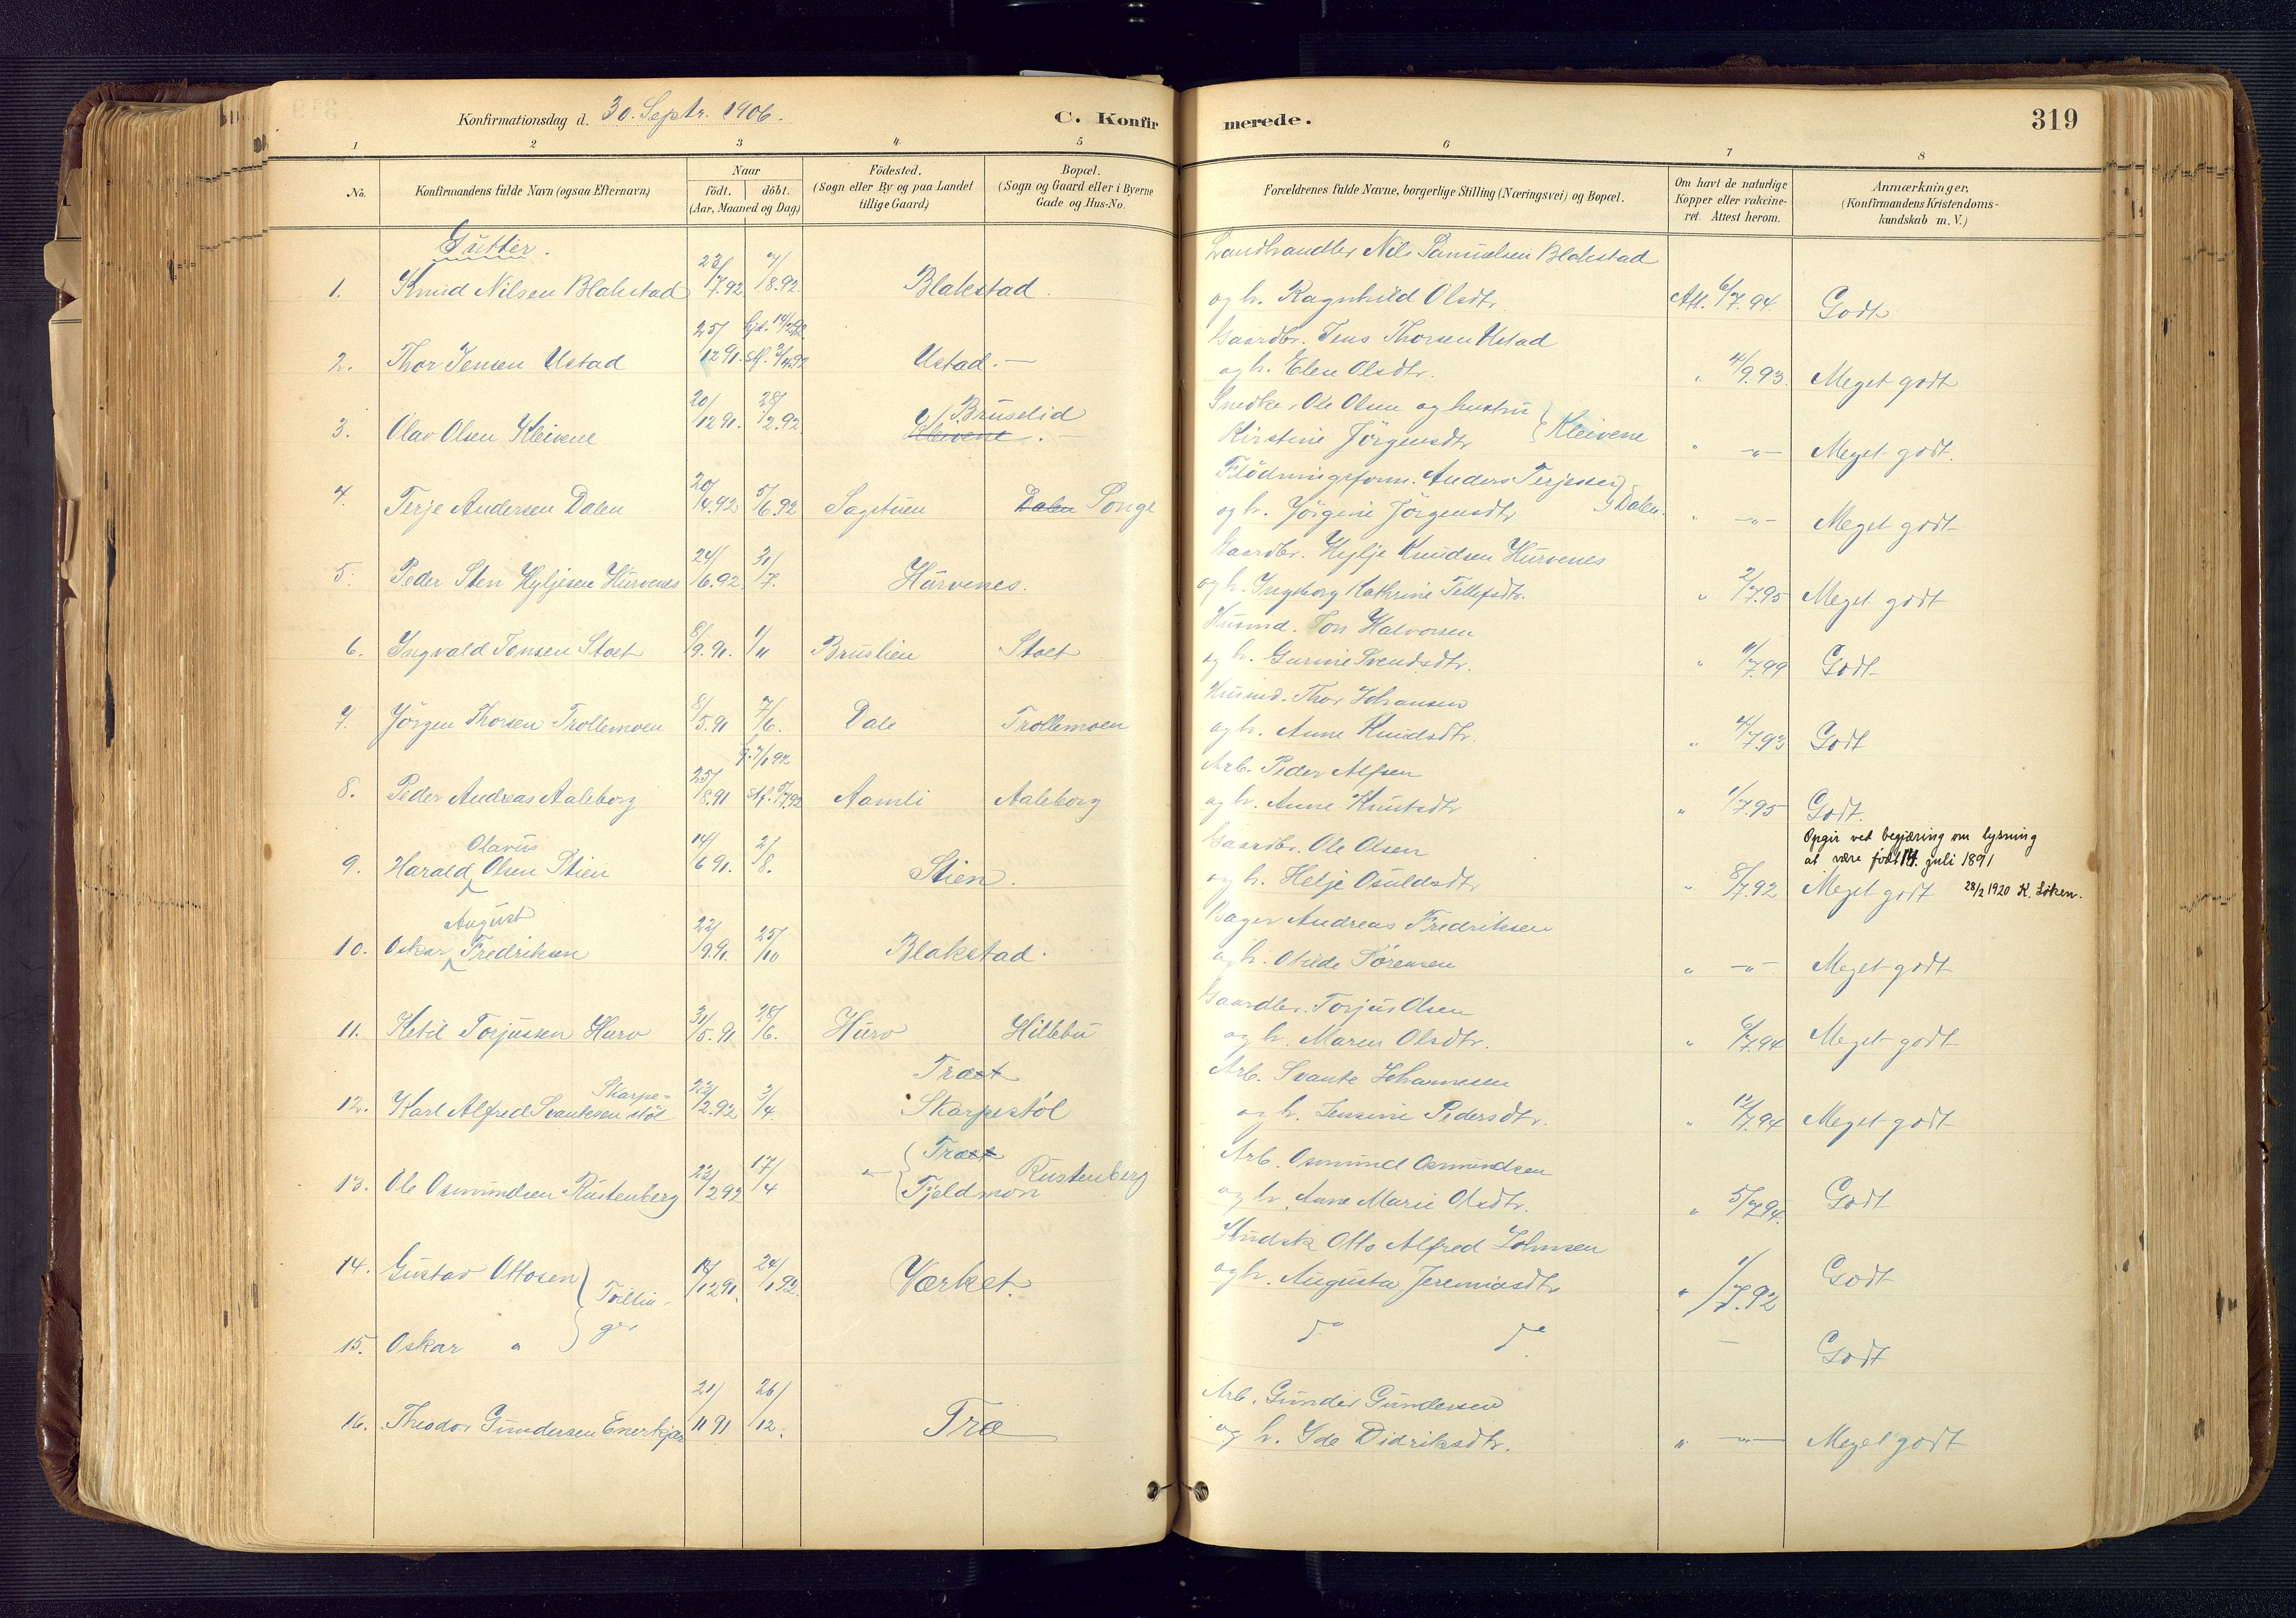 Konfirmationsdag d. 30. Septr. 1906.
C. Konfirmerede.
319
1 2 3 4 5 6 7 8
No.
Konfirmandens fulde Navn (ogsaa Efternavn)
Naar
födt. döbt.
(Aar, Maaned og Dag)
Födested.
(Sogn eller By og paa Landet
tillige Gaard)
Bopæl.
(Sogn og Gaard eller i Byerne
Gade og Hus-No.
Forældrenes fulde Navne, borgerlige Stilling (Næringsvei) og Bopæl.
Om havt de naturlige
Kopper eller vakcine-
ret. Attest herom.
Anmærkninger.
(Konfirmandens Kristendoms-
kundskab m. V.)
Gutter.
Landhandler Nils Samuelsen Blakstad
1. Knud Nilsen Blakstad 23/7.92 7/8.92 Blakstad. og h. Ragnhild Olsdtr. Att. 6/7.94. Godt
Gaardbr. Jens Thorsen Ustad
2. Thor Jensen Ustad 25/12 91. hjd. st. 3/4 92 Ustad. — og h. Elen Olsdtr. " 4/9.93. Meget godt
Snedker Ole Olsen og hustru
3. Olav Olsen Kleivene 20/12 91. 28/2.92. Bruselid Kleivene. — Kirstine Jörgensdtr } Kleivene " —"— Meget godt.
Flödningsform. Anders Terjesen
4. Terje Andersen Dalen 20/4.92 5/6.92 Sagstuen Dalen Songe og h. Jörgine Jörgensdtr } Dalen. " —"— Meget godt
Gaardbr. Kylje Knudsen Hurvenes
5. Peder Sten Kyljesen Hurvenes 24/6.92. 31/7. Hurvenes. og h. Ingeborg Kathrine Tellefsdtr. " 2/7.95 Meget godt
Husmd. Jon Halvorsen
6. Ingvald Jonsen Stoet 8/9.91. 1/11 Bruslien Stoet og h. Gurine Svendsdtr. " 11/7.99 Godt
Husmd. Thor Johansen
7. Jörgen Thorsen Trollemoen 8/5.91 7/6. Dale Trollemoen og h. Anne Knudsdtr. " 4/7.93 Godt
Arb. Peder Alfsen
8. Peder Andreas Aaleborg 25/8.91 Aamli Aaleborg og h. Anne Knutsdtr " 1/7.95 Godt.
Opgir ved begjæring om lysning
at være født 14. juli 1891
28/2 1920 K. Löken.
Gaardbr. Ole Olsen
9. Harald Olavus Olsen Stien 14/6 91. 2/8. Stien. og h. Helje Osuldsdtr " 8/7.92 Meget godt
Bager Andreas Fredriksen
10. Oskar August Fredriksen 22/9.91. 25/10 Blakstad. og h. Otilde Sörensen " —"— Meget godt
Gaardbr. Torjus Olsen
11. Ketil Torjussen Hurv 31/5.91 28/6. Hurv Hillebu og h. Maren Olsdtr. " 6/7.94 Meget godt
Træet
Arb. Svante Johannesen
12. Karl Alfred Svantesen Skarpe= støl 22/2.92 3/4 Skarpestöl og h. Jensine Pedersdtr. " 12/7.94 Meget godt
Arb. Osmund Osmundsen
13. Ole Osmundsen Rustenberg 22/2 92 17/4 { Træet Fjeldmon Rustenberg og h. Anne Marie Olsdtr. " 5/7.94. Godt
Otto Alfred Johnsen
14. Gustav Ottosen } Tvillin- ger 24/1 92. Værket. og h. Augusta Jeremiasdtr " 1/7.92 Godt
15. Oskar " do do — Godt
Arb. Gunder Gundersen
16. Theodor Gundersen Enerkjær 21/11 91 26/12. Træ og h. Ide Didriksdtr. " —"— Meget godt